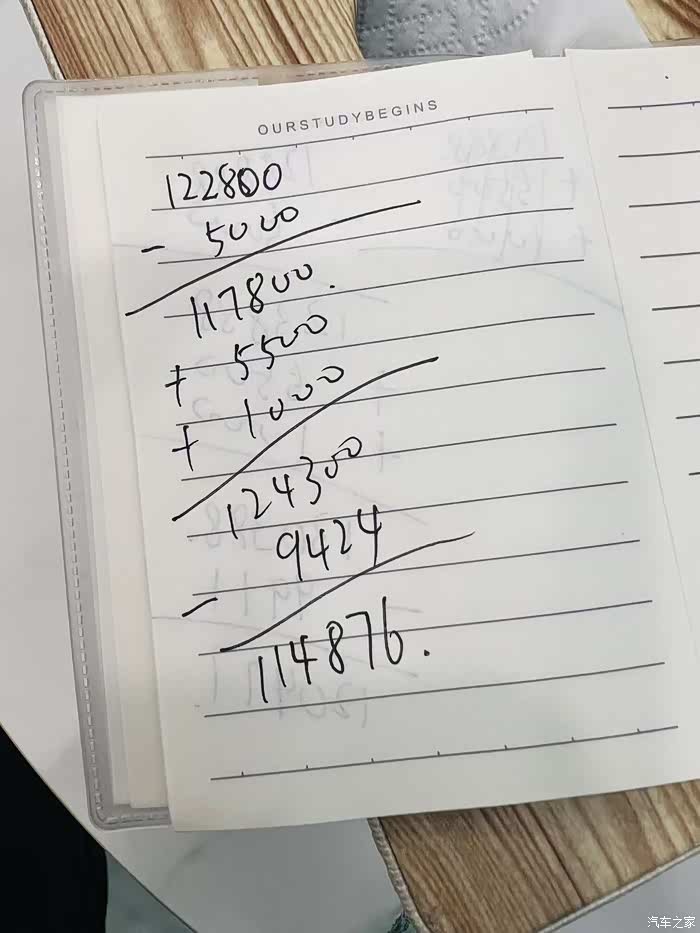 OURSTUDYBEGINS
122800
- 5000
117800.
+ 5500
+ 1000
124300
- 9424
114876.
汽车之家